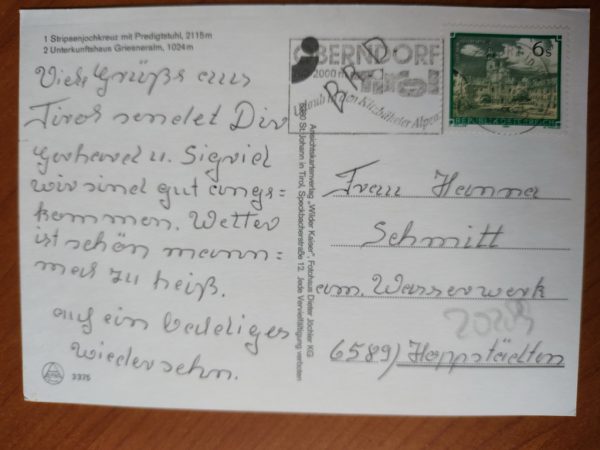 1 Stripsenjochkreuz mit Predigtstuhl, 2115m
2 Unterkunftshaus Griesneralm, 1024m
Viele Grüße aus
Tirol sendet Dir
Gerhard u. Sigrid
wir sind gut ange=
kommen. Wetter
ist schön mann=
mal zu heiß.
auf ein baldiges
wiedersehn.
3375
Ansichtskartenverlag „Wilder Kaiser", Fotohaus Dieter Jöchler KG
6380 St. Johann in Tirol, Speckbacherstraße 12. Jede Vervielfältigung verboten
OBERNDORF
2000 m
Tirol
Urlaub in den Kitzbüheler Alpen
BRD.
6 S
REPUBLIK ÖSTERREICH
Frau Hanna
Schmitt
am. Wasserwerk
6589) Hoppstädten